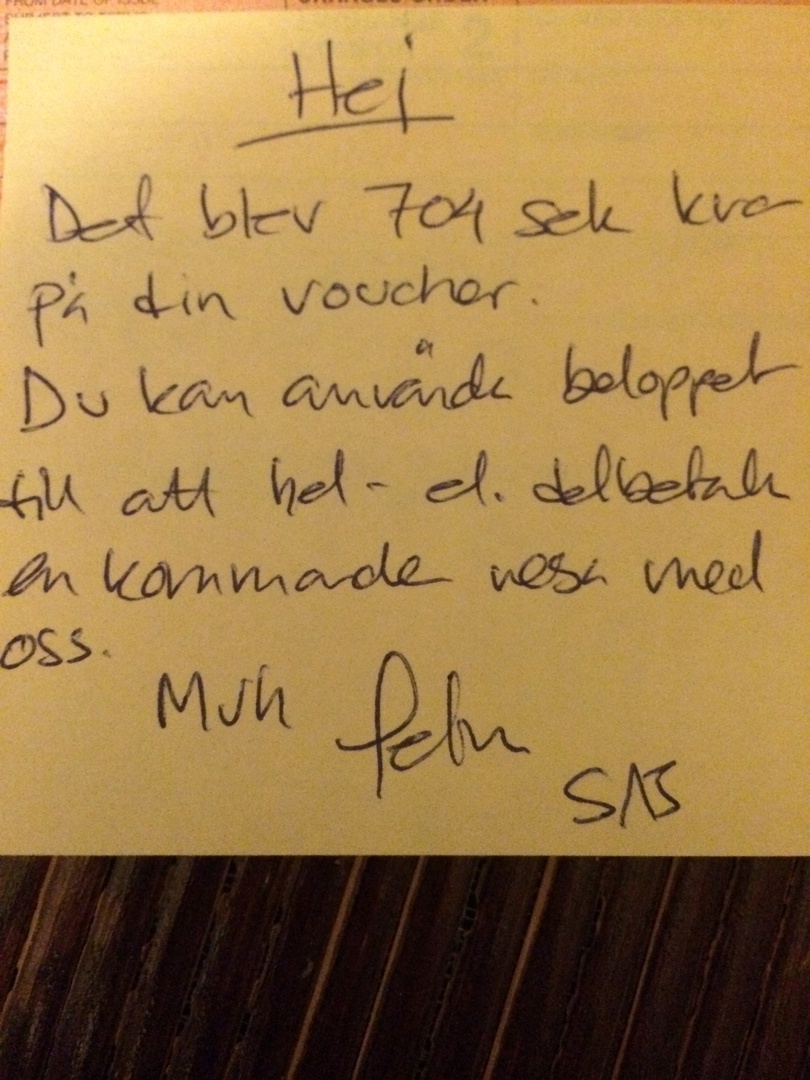 FROM DATE OF ISSUE
Hej
Det blev 704 sek kvar
på din voucher.
Du kan använda beloppet
till att hel- el. delbetala
en kommande resa med
oss.
Mvh
SAS